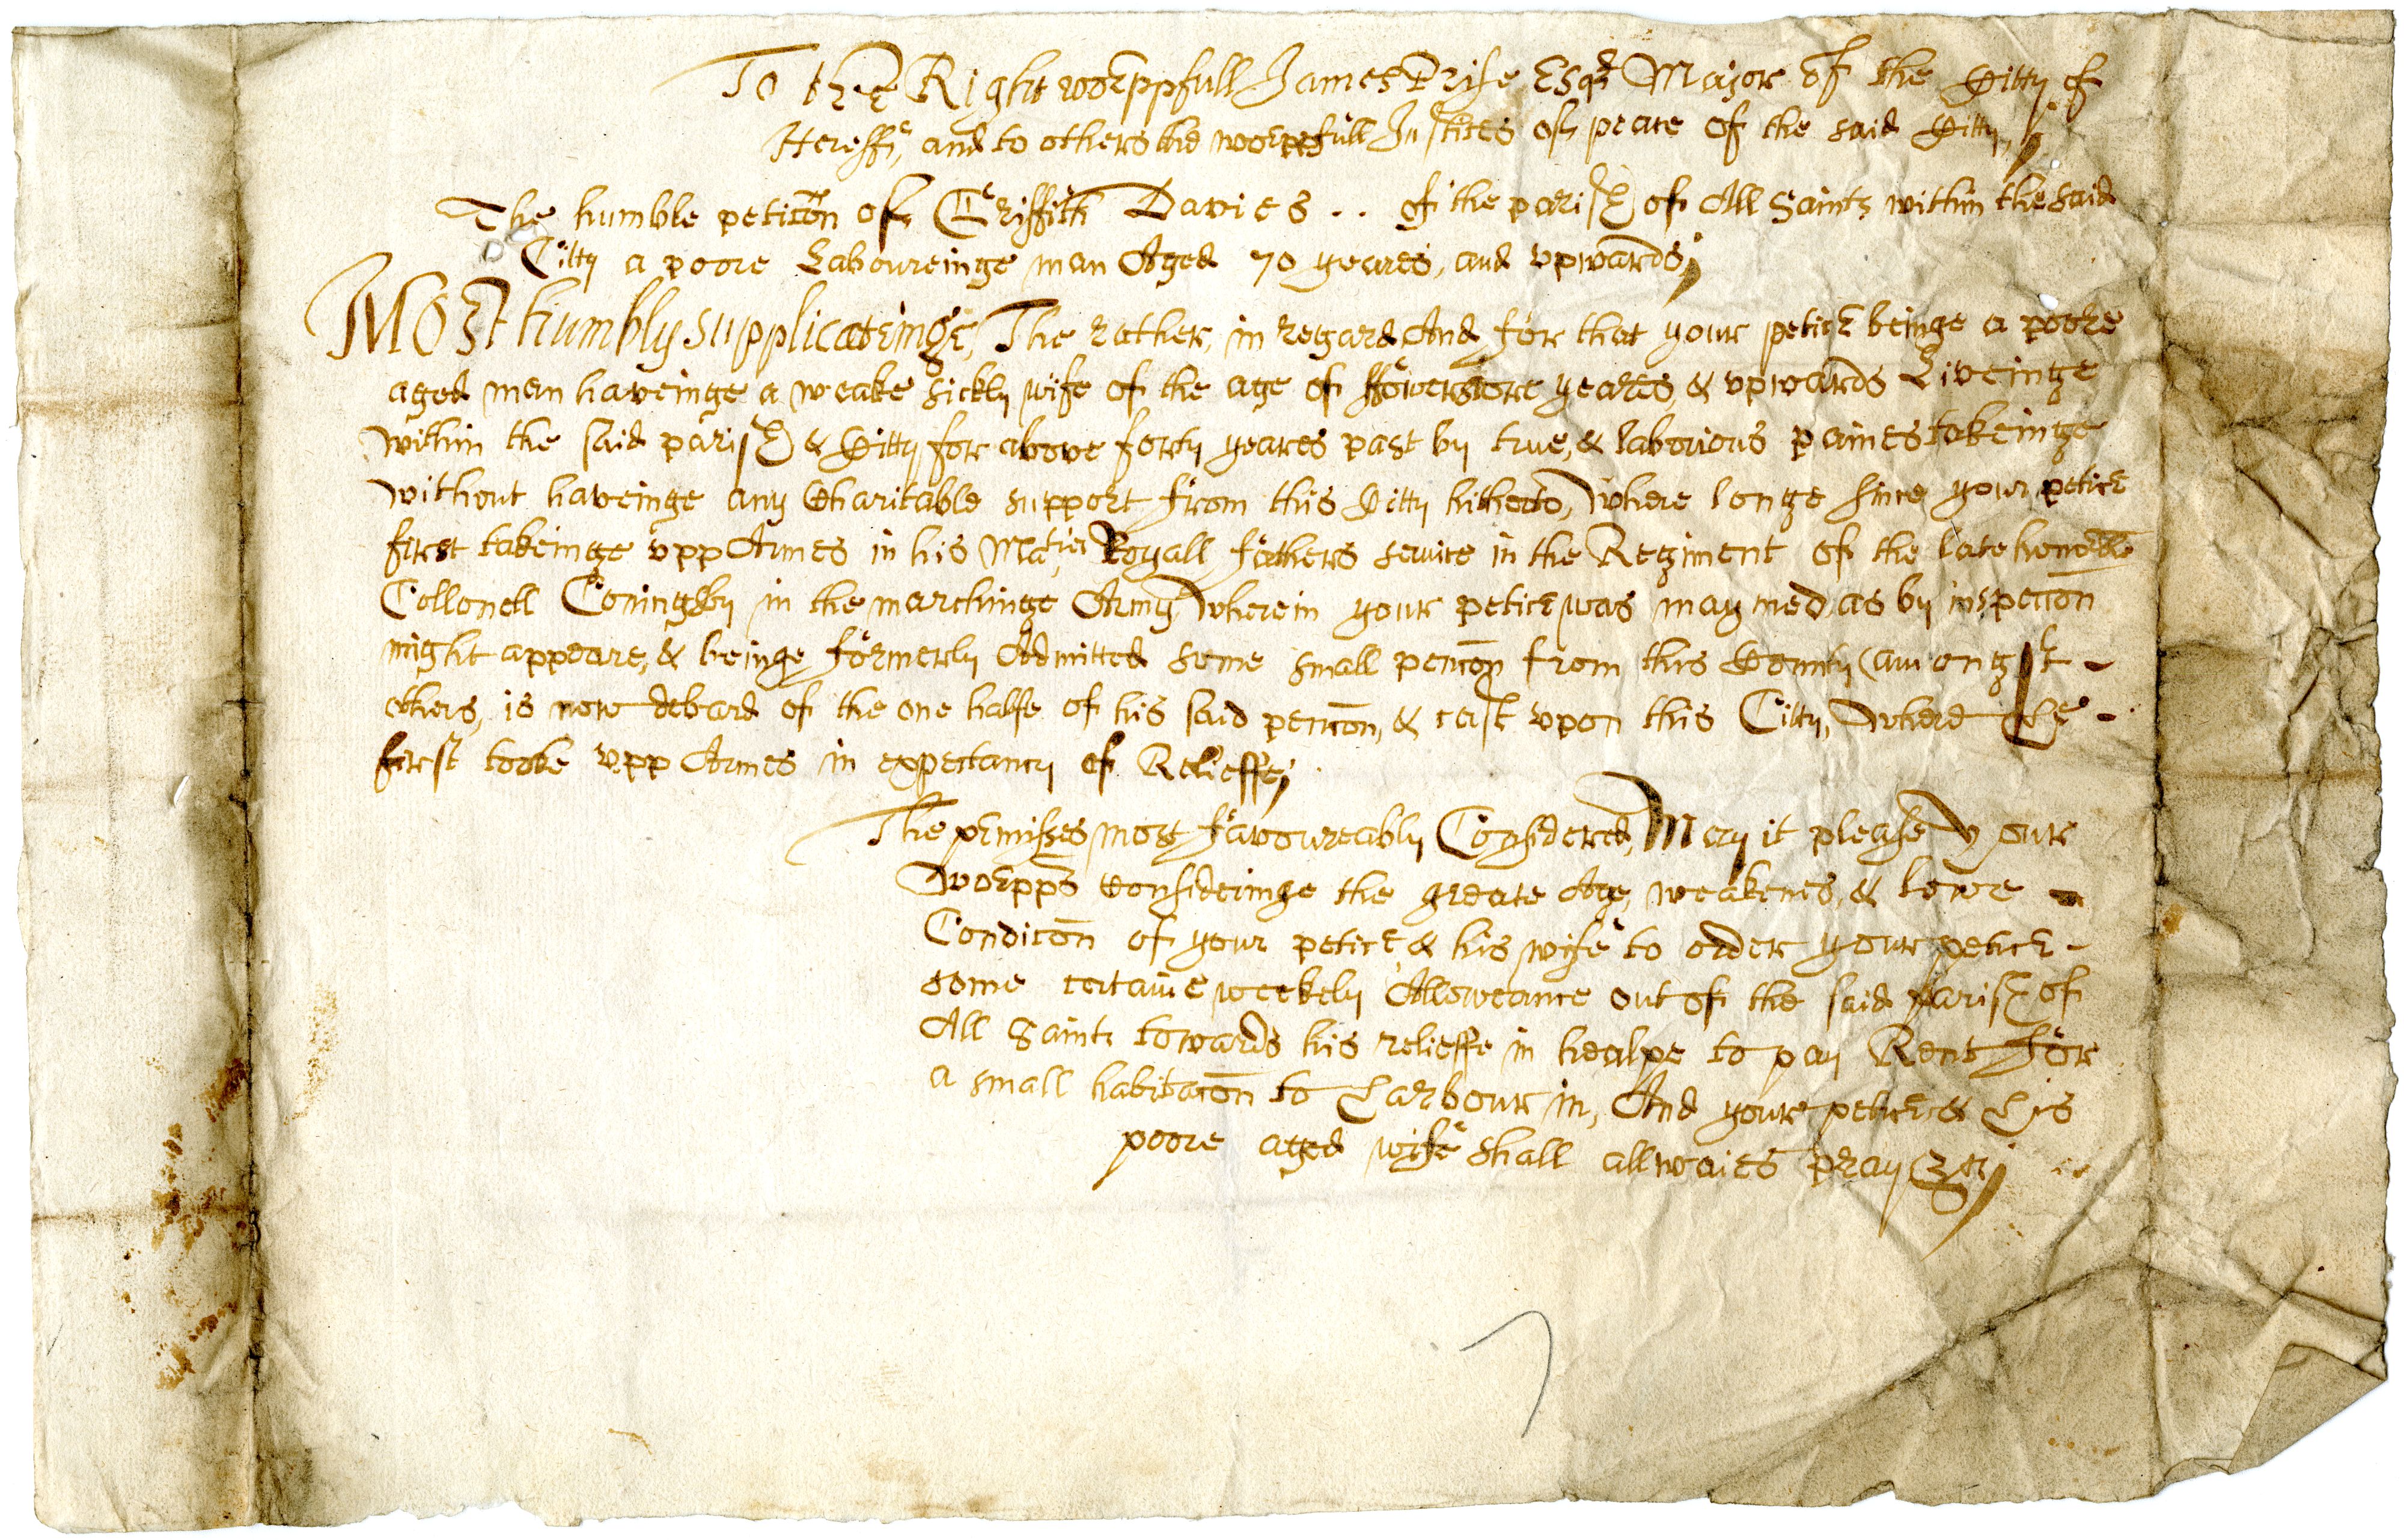 To the Right worppfull James Prise Esqr Maior of the Citty of
Hereff, and to others the worppfull Justices of peace of the said Citty,
The humble peticon of Griffith Davies .. of the parish of All Saints within the said
Citty a poore Laboureinge man Aged 70 yeares, and vpwards;
Most humbly supplicateinge, The rather, in regard And for that your peticr beinge a poore
aged man haveinge a weake sickly wife of the age of ffowerscore yeares, & vpwards Liveinge
within the said parish & Citty for above forty yeares past by true, & laborious paines takeinge
without haveinge any Charitable support from this Citty hitherto, Where longe since your peticr
first takeinge vpp Armes in his Maties Royall fathers service in the Regiment of the late honoble
Collonell Coningsby in the marchinge Army, Wherein your peticr was maymed, as by inspeccon
might appeare, & beinge formerly Admitted some small pencon from this County (amongst -
others, is now debard of the one halfe of his said pencon, & cast vpon this Citty, Where he -
first tooke vpp Armes in expectancy of Relieffe;
The premisses most favoureably Considered, May it please your
Worpps Consideringe the greate Age, weakenes, & lowe -
Condicon of your peticr, & his wife to order your peticr -
some certaine weekely Alloweance out of the said parish of
All Saints towards his relieffe in healpe to pay Rent for
a small habitacon to Harbour in, And your peticr & his
poore aged wife shall allwaies pray &c; ..